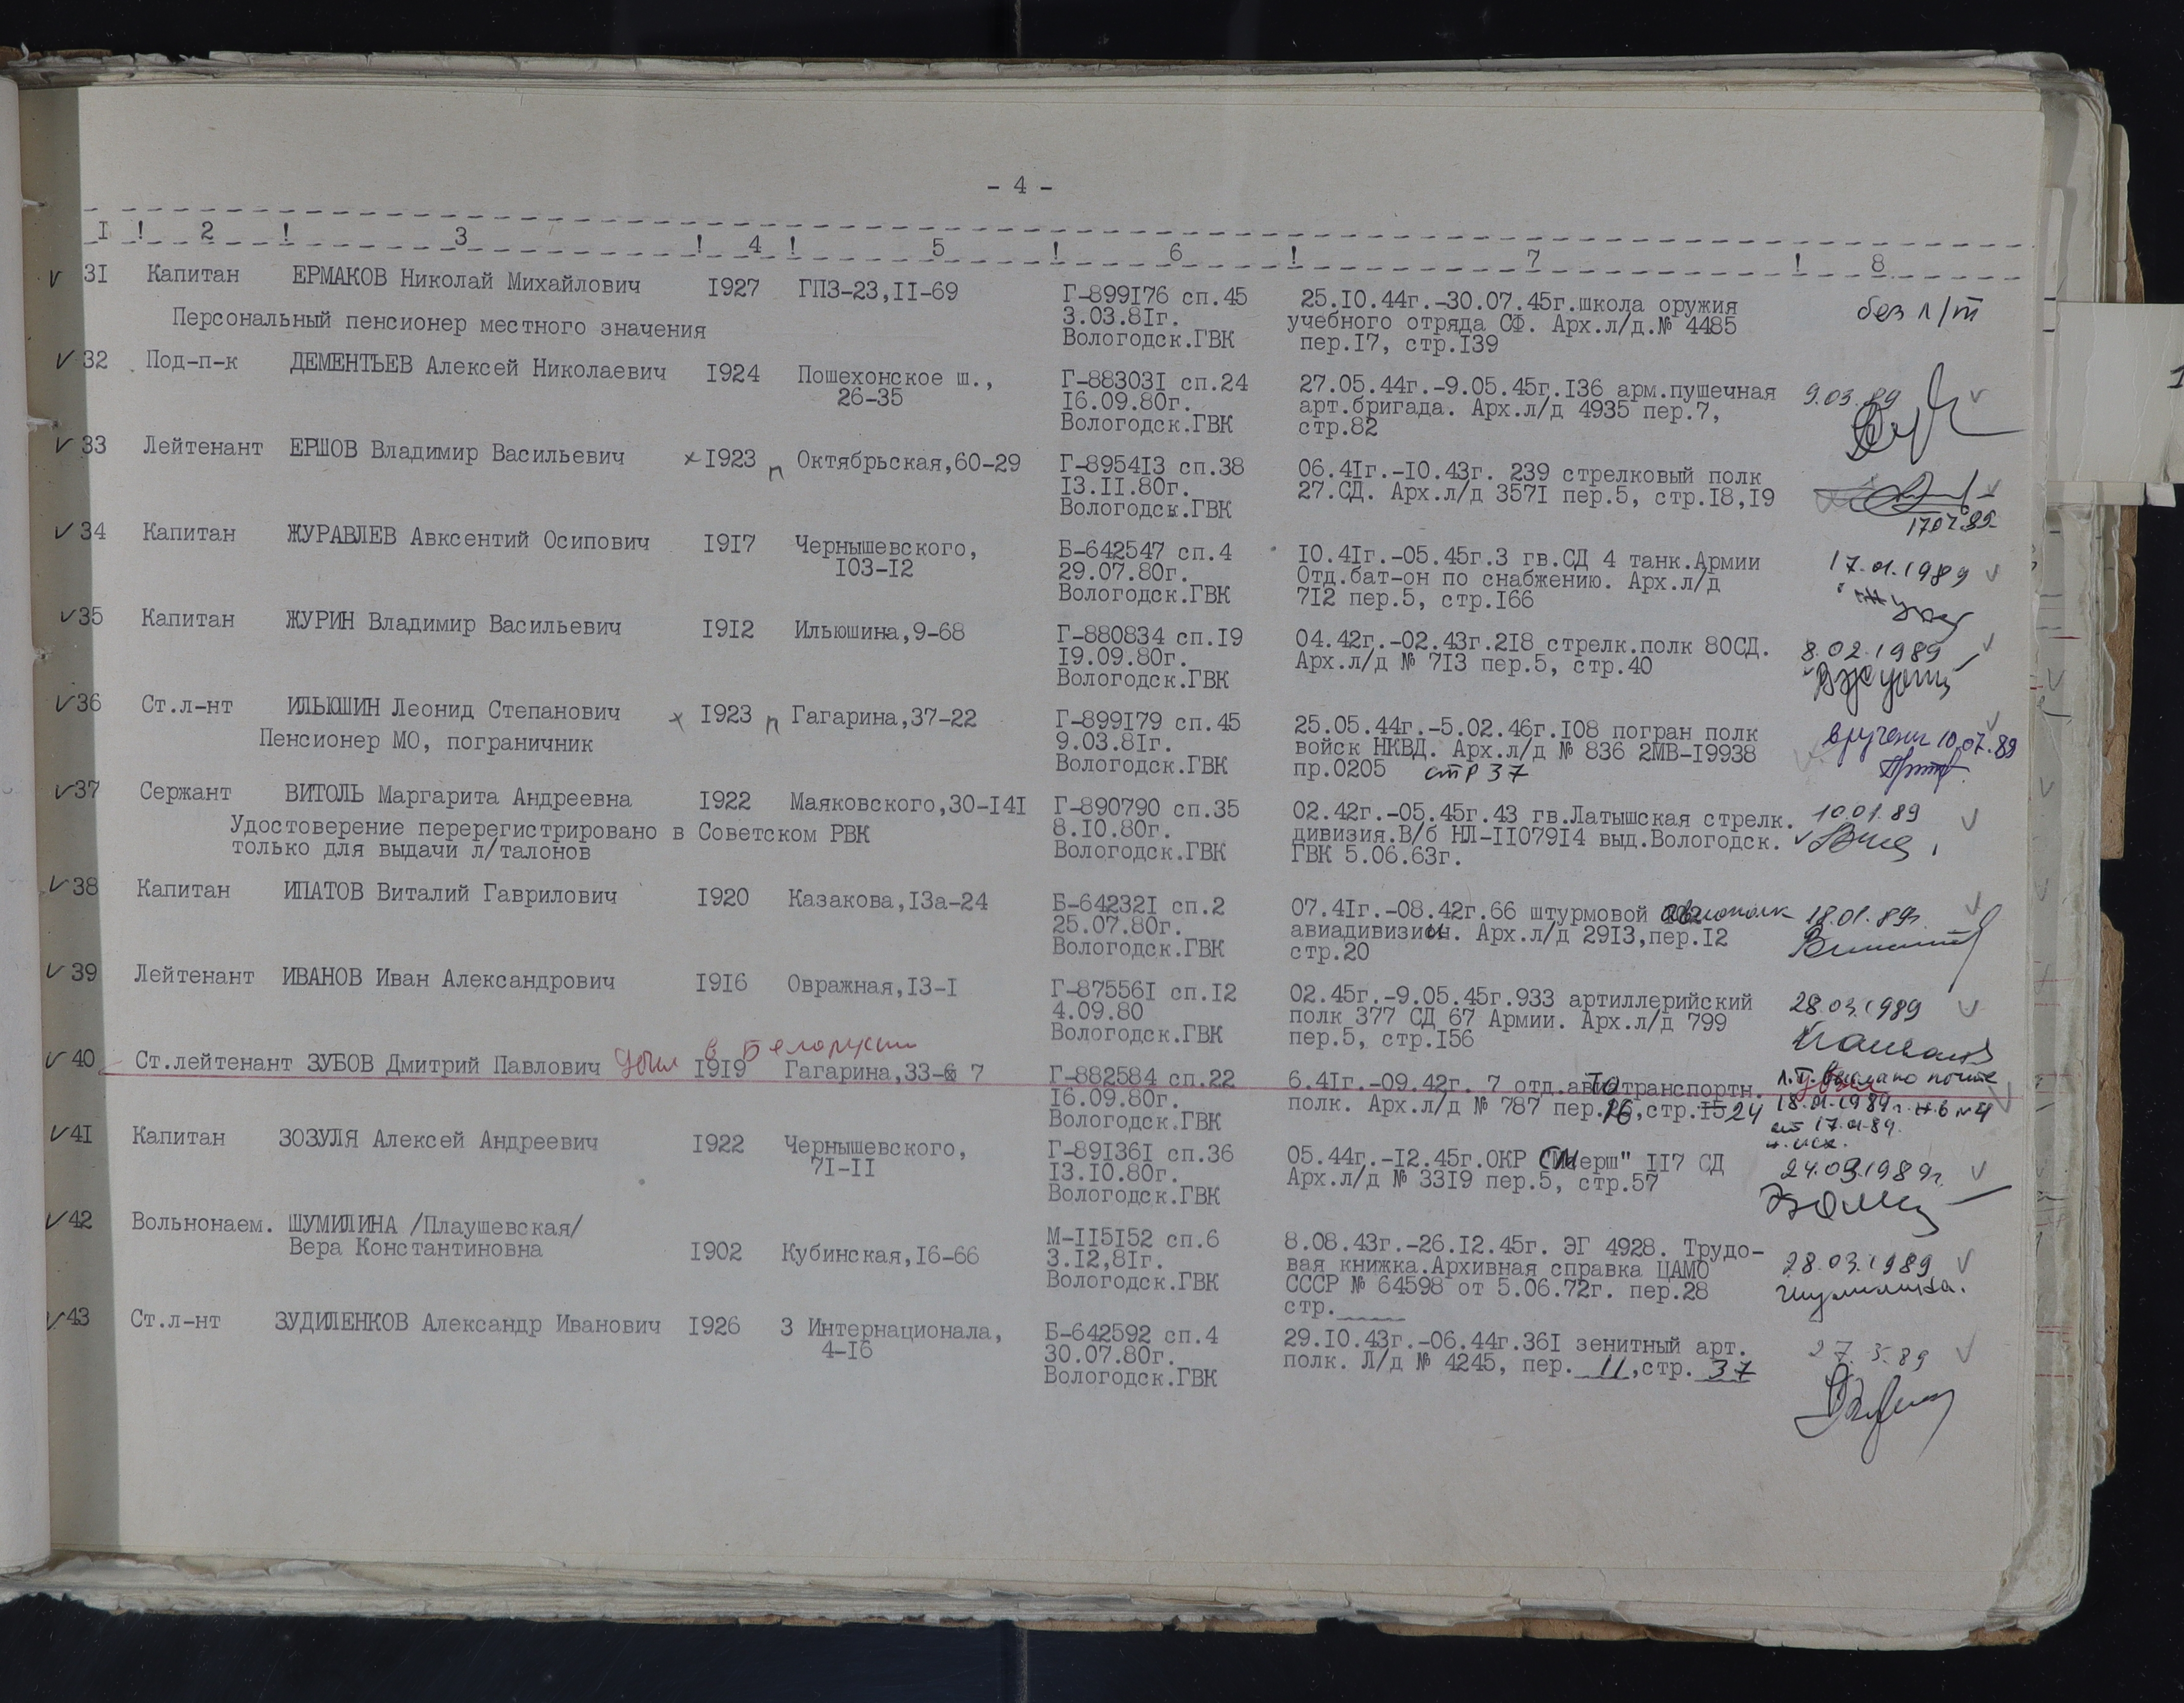 - 4 -
I ! 2 ! 3 ! 4 ! 5 ! 6 ! 7 ! 8
31 Капитан ЕРМАКОВ Николай Михайлович I927 ГПЗ-23,II-69 Г-899I76 сп.45 25.I0.44г.-30.07.45г.школа оружия без л/т
Персональный пенсионер местного значения 3.03.8Iг. учебного отряда СФ. Арх.л/д.№ 4485
Вологодск.ГВК пер.I7, стр.I39
32 Под-п-к ДЕМЕНТЬЕВ Алексей Николаевич I924 Пошехонское ш., Г-88303I сп.24 27.05.44г.-9.05.45г.I36 арм.пушечная 9.03.89
26-35 I6.09.80г. арт.бригада. Арх.л/д 4935 пер.7,
Вологодск.ГВК стр.82
33 Лейтенант ЕРШОВ Владимир Васильевич х I923 п Октябрьская,60-29 Г-8954I3 сп.38 06.4Iг.-I0.43г. 239 стрелковый полк
I3.II.80г. 27.СД. Арх.л/д 357I пер.5, стр.I8,I9
Вологодск.ГВК
34 Капитан ЖУРАВЛЕВ Авксентий Осипович I9I7 Чернышевского, Б-642547 сп.4 I0.4Iг.-05.45г.3 гв.СД 4 танк.Армии 17.01.1989
I03-I2 29.07.80г. Отд.бат-он по снабжению. Арх.л/д
Вологодск.ГВК 7I2 пер.5, стр.I66
35 Капитан ЖУРИН Владимир Васильевич I9I2 Ильюшина,9-68 Г-880834 сп.I9 04.42г.-02.43г.2I8 стрелк.полк 80СД. 8.02.1989
I9.09.80г. Арх.л/д № 7I3 пер.5, стр.40
Вологодск.ГВК
36 Ст.л-нт ИЛЬЮШИН Леонид Степанович х I923 п Гагарина,37-22 Г-899I79 сп.45 25.05.44г.-5.02.46г.I08 погран полк вручены 10.07.89
Пенсионер МО, пограничник 9.03.8Iг. войск НКВД. Арх.л/д № 836 2МВ-I9938
Вологодск.ГВК пр.0205 стр 37
37 Сержант ВИТОЛЬ Маргарита Андреевна I922 Маяковского,30-I4I Г-890790 сп.35 02.42г.-05.45г.43 гв.Латышская стрелк. 10.01.89
Удостоверение перерегистрировано в Советском РВК 8.I0.80г. дивизия.В/б НЛ-II079I4 выд.Вологодск.
только для выдачи л/талонов Вологодск.ГВК ГВК 5.06.63г.
38 Капитан ИПАТОВ Виталий Гаврилович I920 Казакова,I3а-24 Б-64232I сп.2 07.4Iг.-08.42г.66 штурмовой авиополк 18.01.89г.
25.07.80г. авиадивизии. Арх.л/д 29I3,пер.I2
Вологодск.ГВК стр.20
39 Лейтенант ИВАНОВ Иван Александрович I9I6 Овражная,I3-I Г-87556I сп.I2 02.45г.-9.05.45г.933 артиллерийский 28.03.1989
4.09.80 полк 377 СД 67 Армии. Арх.л/д 799
Вологодск.ГВК пер.5, стр.I56
убыл в Белоруссию
40 Ст.лейтенант ЗУБОВ Дмитрий Павлович I9I9 Гагарина,33-6 7 Г-882584 сп.22 6.4Iг.-09.42г. 7 отд.автотранспортн. л.т. выслано почте
I6.09.80г. полк. Арх.л/д № 787 пер.16,стр.I5 24 18.01.1989г. н.6 №4
Вологодск.ГВК от 17.01.89.
н.исх.
41 Капитан ЗОЗУЛЯ Алексей Андреевич I922 Чернышевского, Г-89I36I сп.36 05.44г.-I2.45г.ОКР "Смерш" II7 СД 24.03.1989г.
7I-II I3.I0.80г. Арх.л/д № 33I9 пер.5, стр.57
Вологодск.ГВК
42 Вольнонаем. ШУМИЛИНА /Плаушевская/ М-II5I52 сп.6 8.08.43г.-26.I2.45г. ЭГ 4928. Трудо-
Вера Константиновна I902 Кубинская,I6-66 3.I2,8Iг. вая книжка.Архивная справка ЦАМО 28.03.1989
Вологодск.ГВК СССР № 64598 от 5.06.72г. пер.28 Шумилина.
стр.____
43 Ст.л-нт ЗУДИЛЕНКОВ Александр Иванович I926 3 Интернационала, Б-642592 сп.4 29.I0.43г.-06.44г.36I зенитный арт. 27.5.89
4-I6 30.07.80г. полк. Л/д № 4245, пер. 11,стр. 37
Вологодск.ГВК